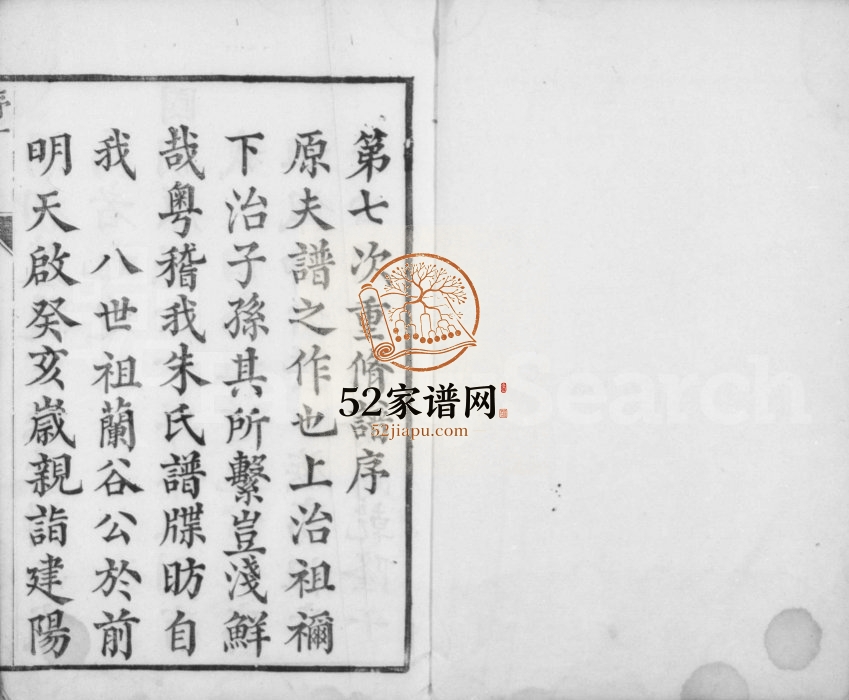 第七次重脩譜序
原夫譜之作也上治祖禰
下治子孫其所繫豈淺鮮
哉粵稽我朱氏譜牒昉自
我 八世祖蘭谷公於前
明天啟癸亥嵗親詣建陽
52家谱网
52jiapu.com